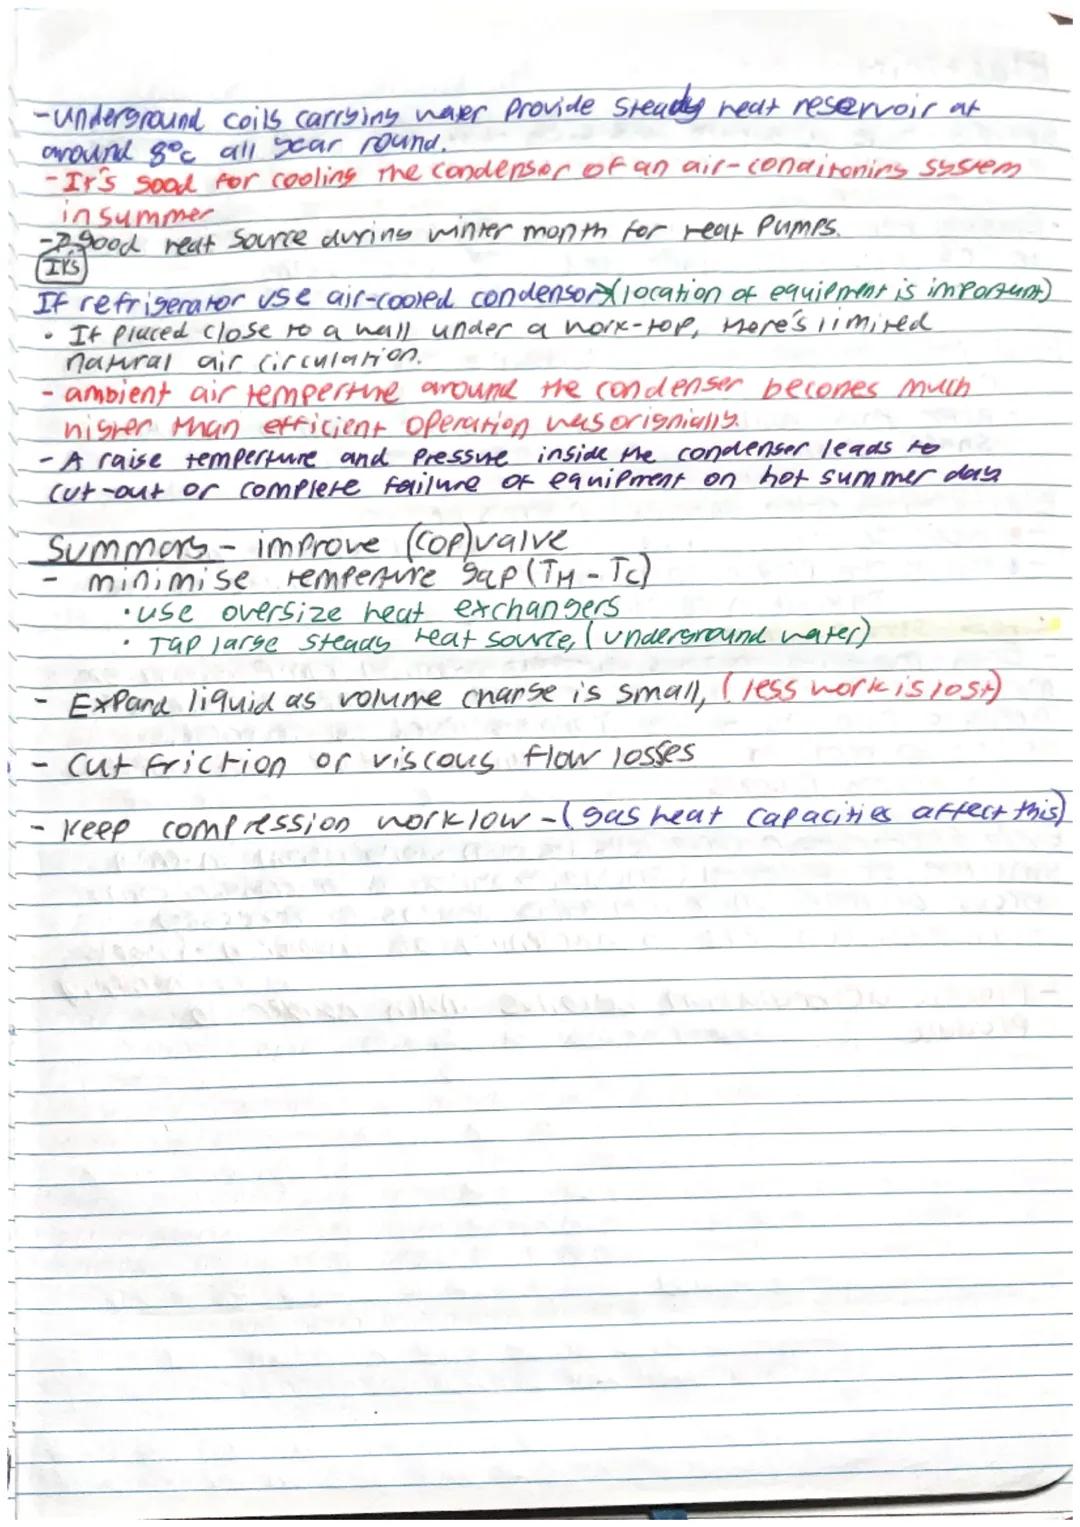 - Underground coils carrying water provide steady heat reservoir at
around 8°c all year round.
- It's good for cooling the condensor of an air-conditoning system
in summer
- good heat source during winter month for heat pumps.
It's
If refrigerator use air-cooled condensor (location of equipment is important)
• If placed close to a wall under a work-top, there's limited
natural air circulation.
- ambient air temperture around the condenser becomes much
higher than efficient operation was orignially.
- A raise temperture and pressure inside the condenser leads to
cut-out or complete failure of equipment on hot summer days
Summary - improve (cop) value
- minimise temperture gap (TH - TC)
• use oversize heat exchangers
• Tap large steady heat source, (underground water)
- Expand liquid as volume change is small, (less work is lost)
- Cut friction or viscous flow losses
- Keep compression work low - (gas heat capacities affect this)